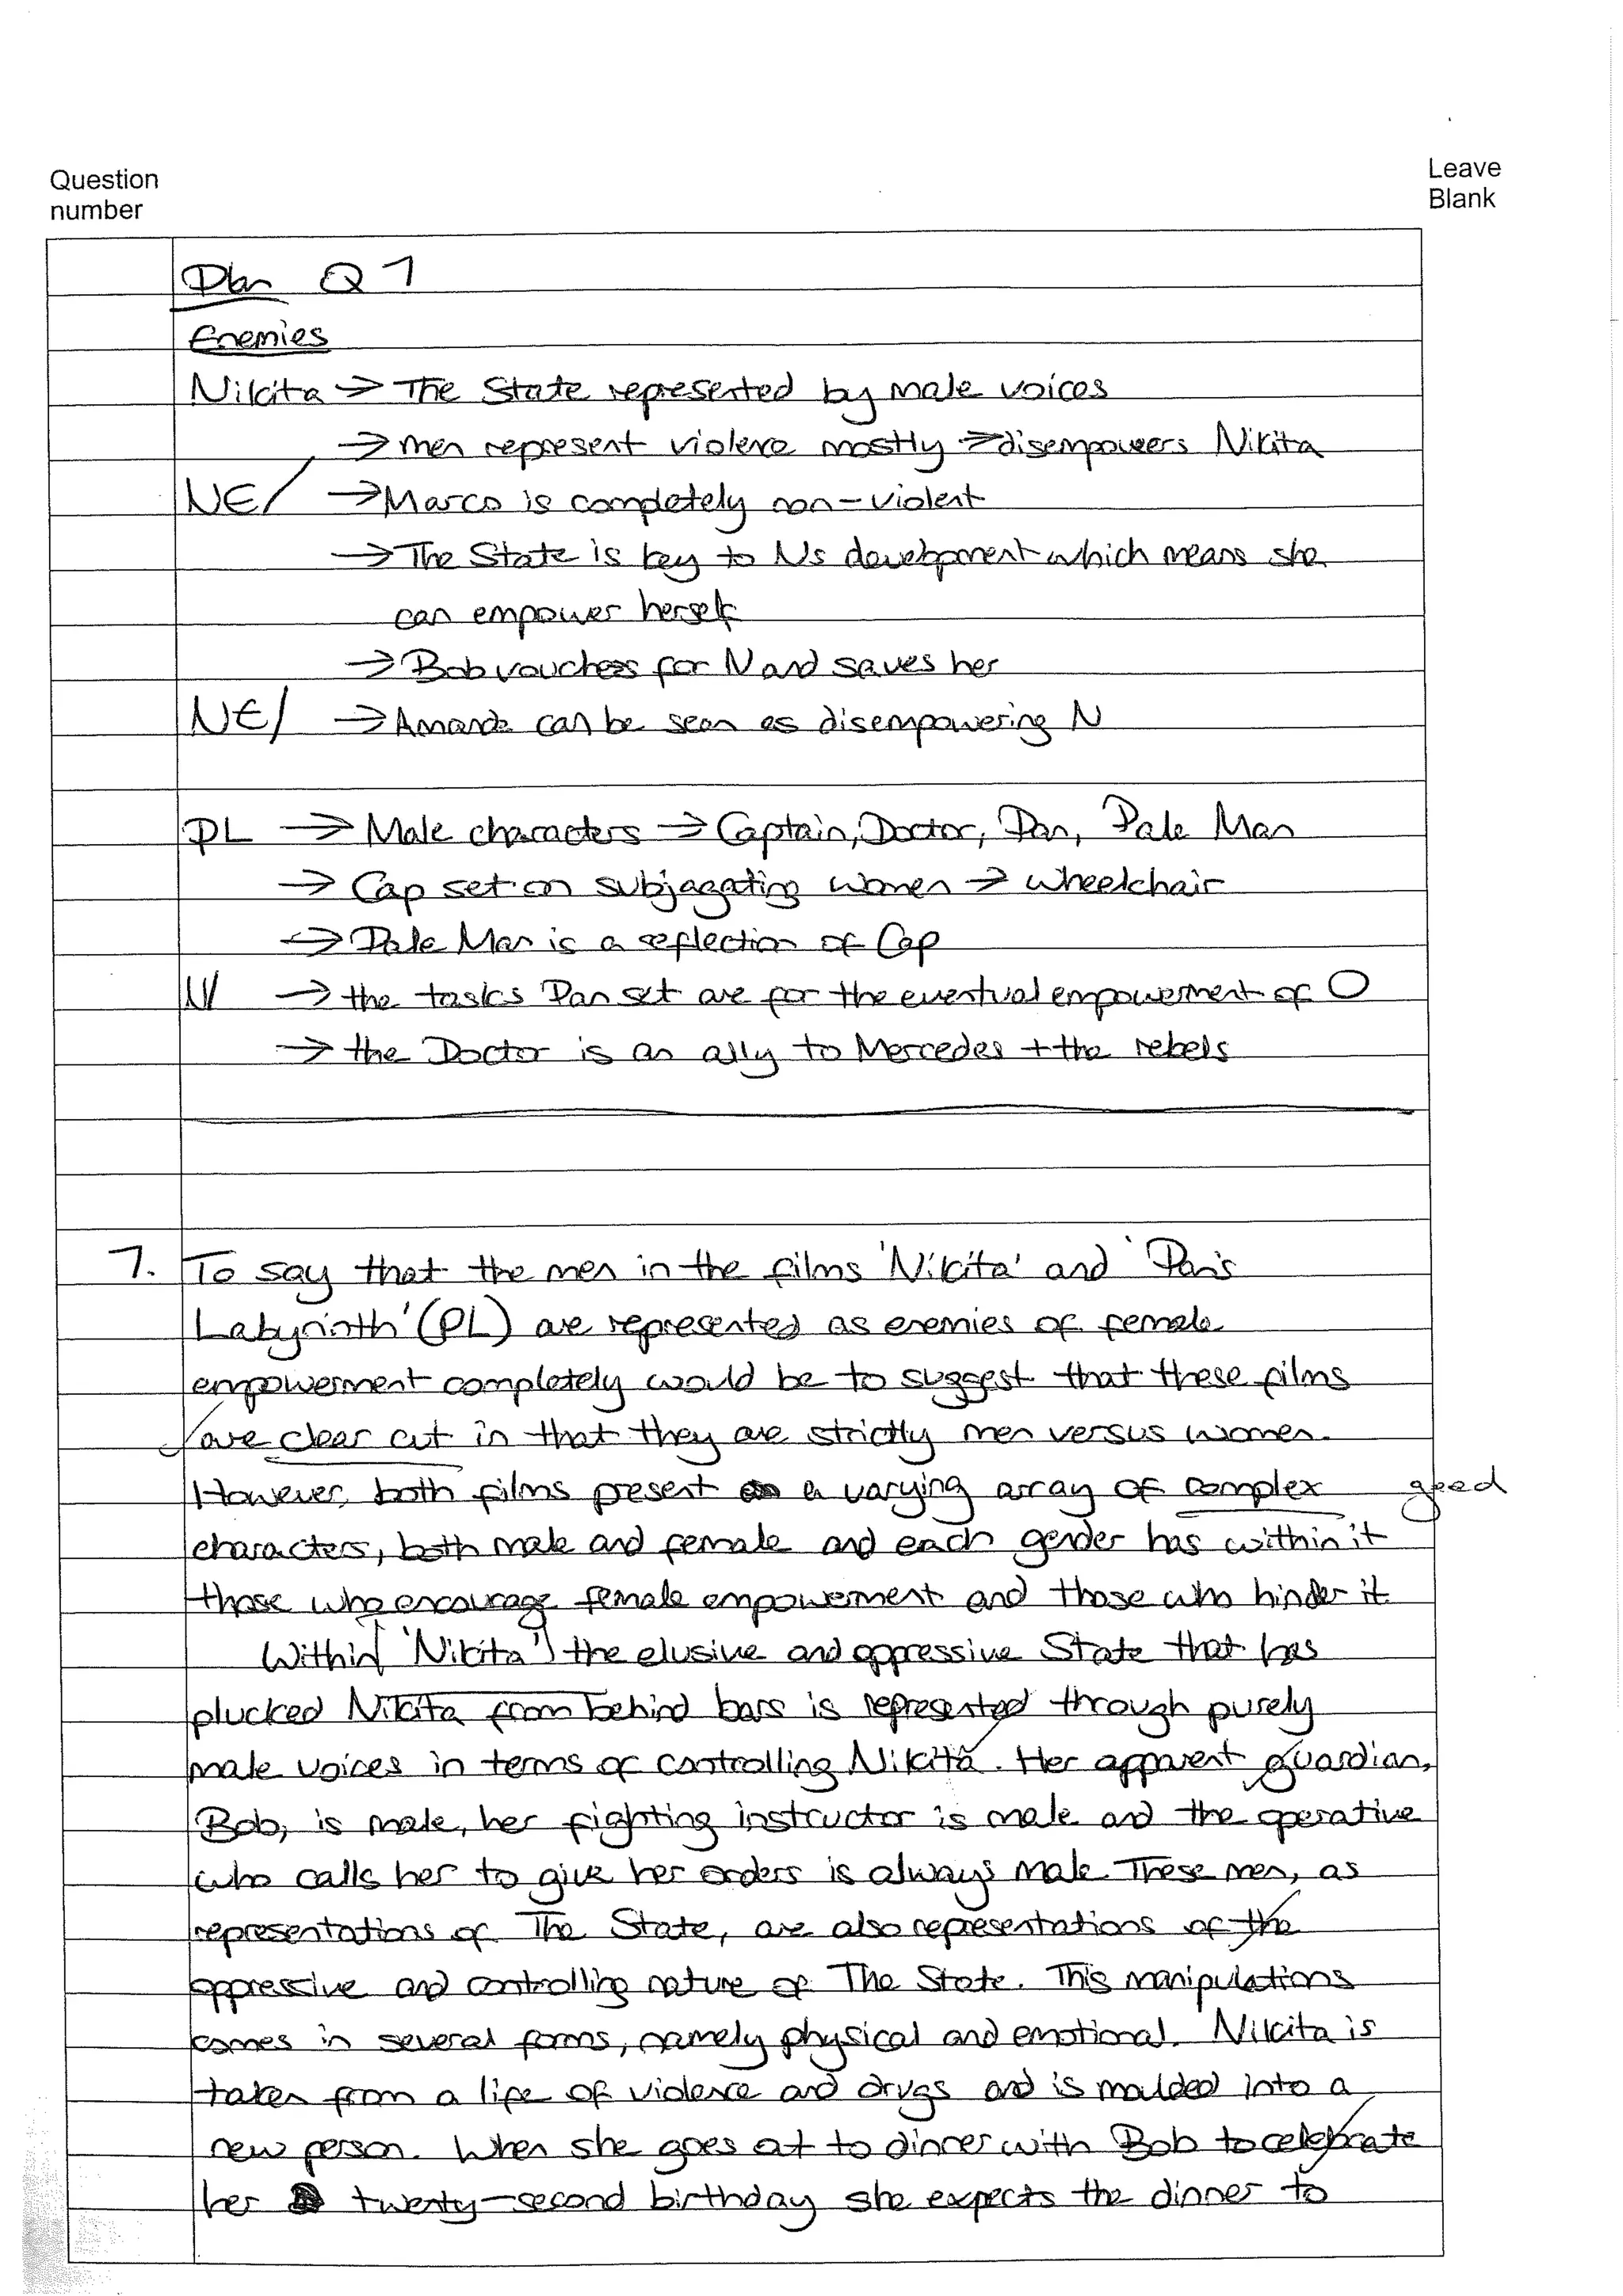 Question
number
Leave
Blank
Plan Q7
Enemies
Nikita → The State represented by male voices
→ men represent violence mostly → disempowers Nikita
NE/ → Marco is completely non-violent
→ The State is key to Ns development which means she
can empower herself
→ Bob vouches for N and saves her
NE/ → Amande can be seen as disempowering N
PL → Male characters → Captain, Doctor, Pan, Pale Man
→ Cap set on subjagating women → wheelchair
→ Pale Man is a reflection of Cap
→ the tasks Pan set are for the eventual empowerment of O
→ the Doctor is an ally to Mercedes + the rebels
7. To say that the men in the films 'Nikita' and 'Pan's
Labyrinth' (PL) are represented as enemies of female
empowerment completely would be to suggest that these films
are clear cut in that they are strictly men versus women.
However, both films present a varying array of complex good
characters, both male and female and each gender has within it
those who encourage female empowerment and those who hinder it.
Within 'Nikita' the elusive and oppressive State that has
plucked Nikita from behind bars is represented through purely
male voices in terms of controlling Nikita. Her apparent guardian,
Bob, is male, her fighting instructor is male and the operative
who calls her to give her orders is always male. These men, as
representations of The State, are also representations of the
oppressive and controlling nature of The State. This manipulations
comes in several forms, namely physical and emotional. Nikita is
taken from a life of violence and drugs and is moulded into a
new person. When she goes out to dinner with Bob to celebrate
her twenty-second birthday she expects the dinner to